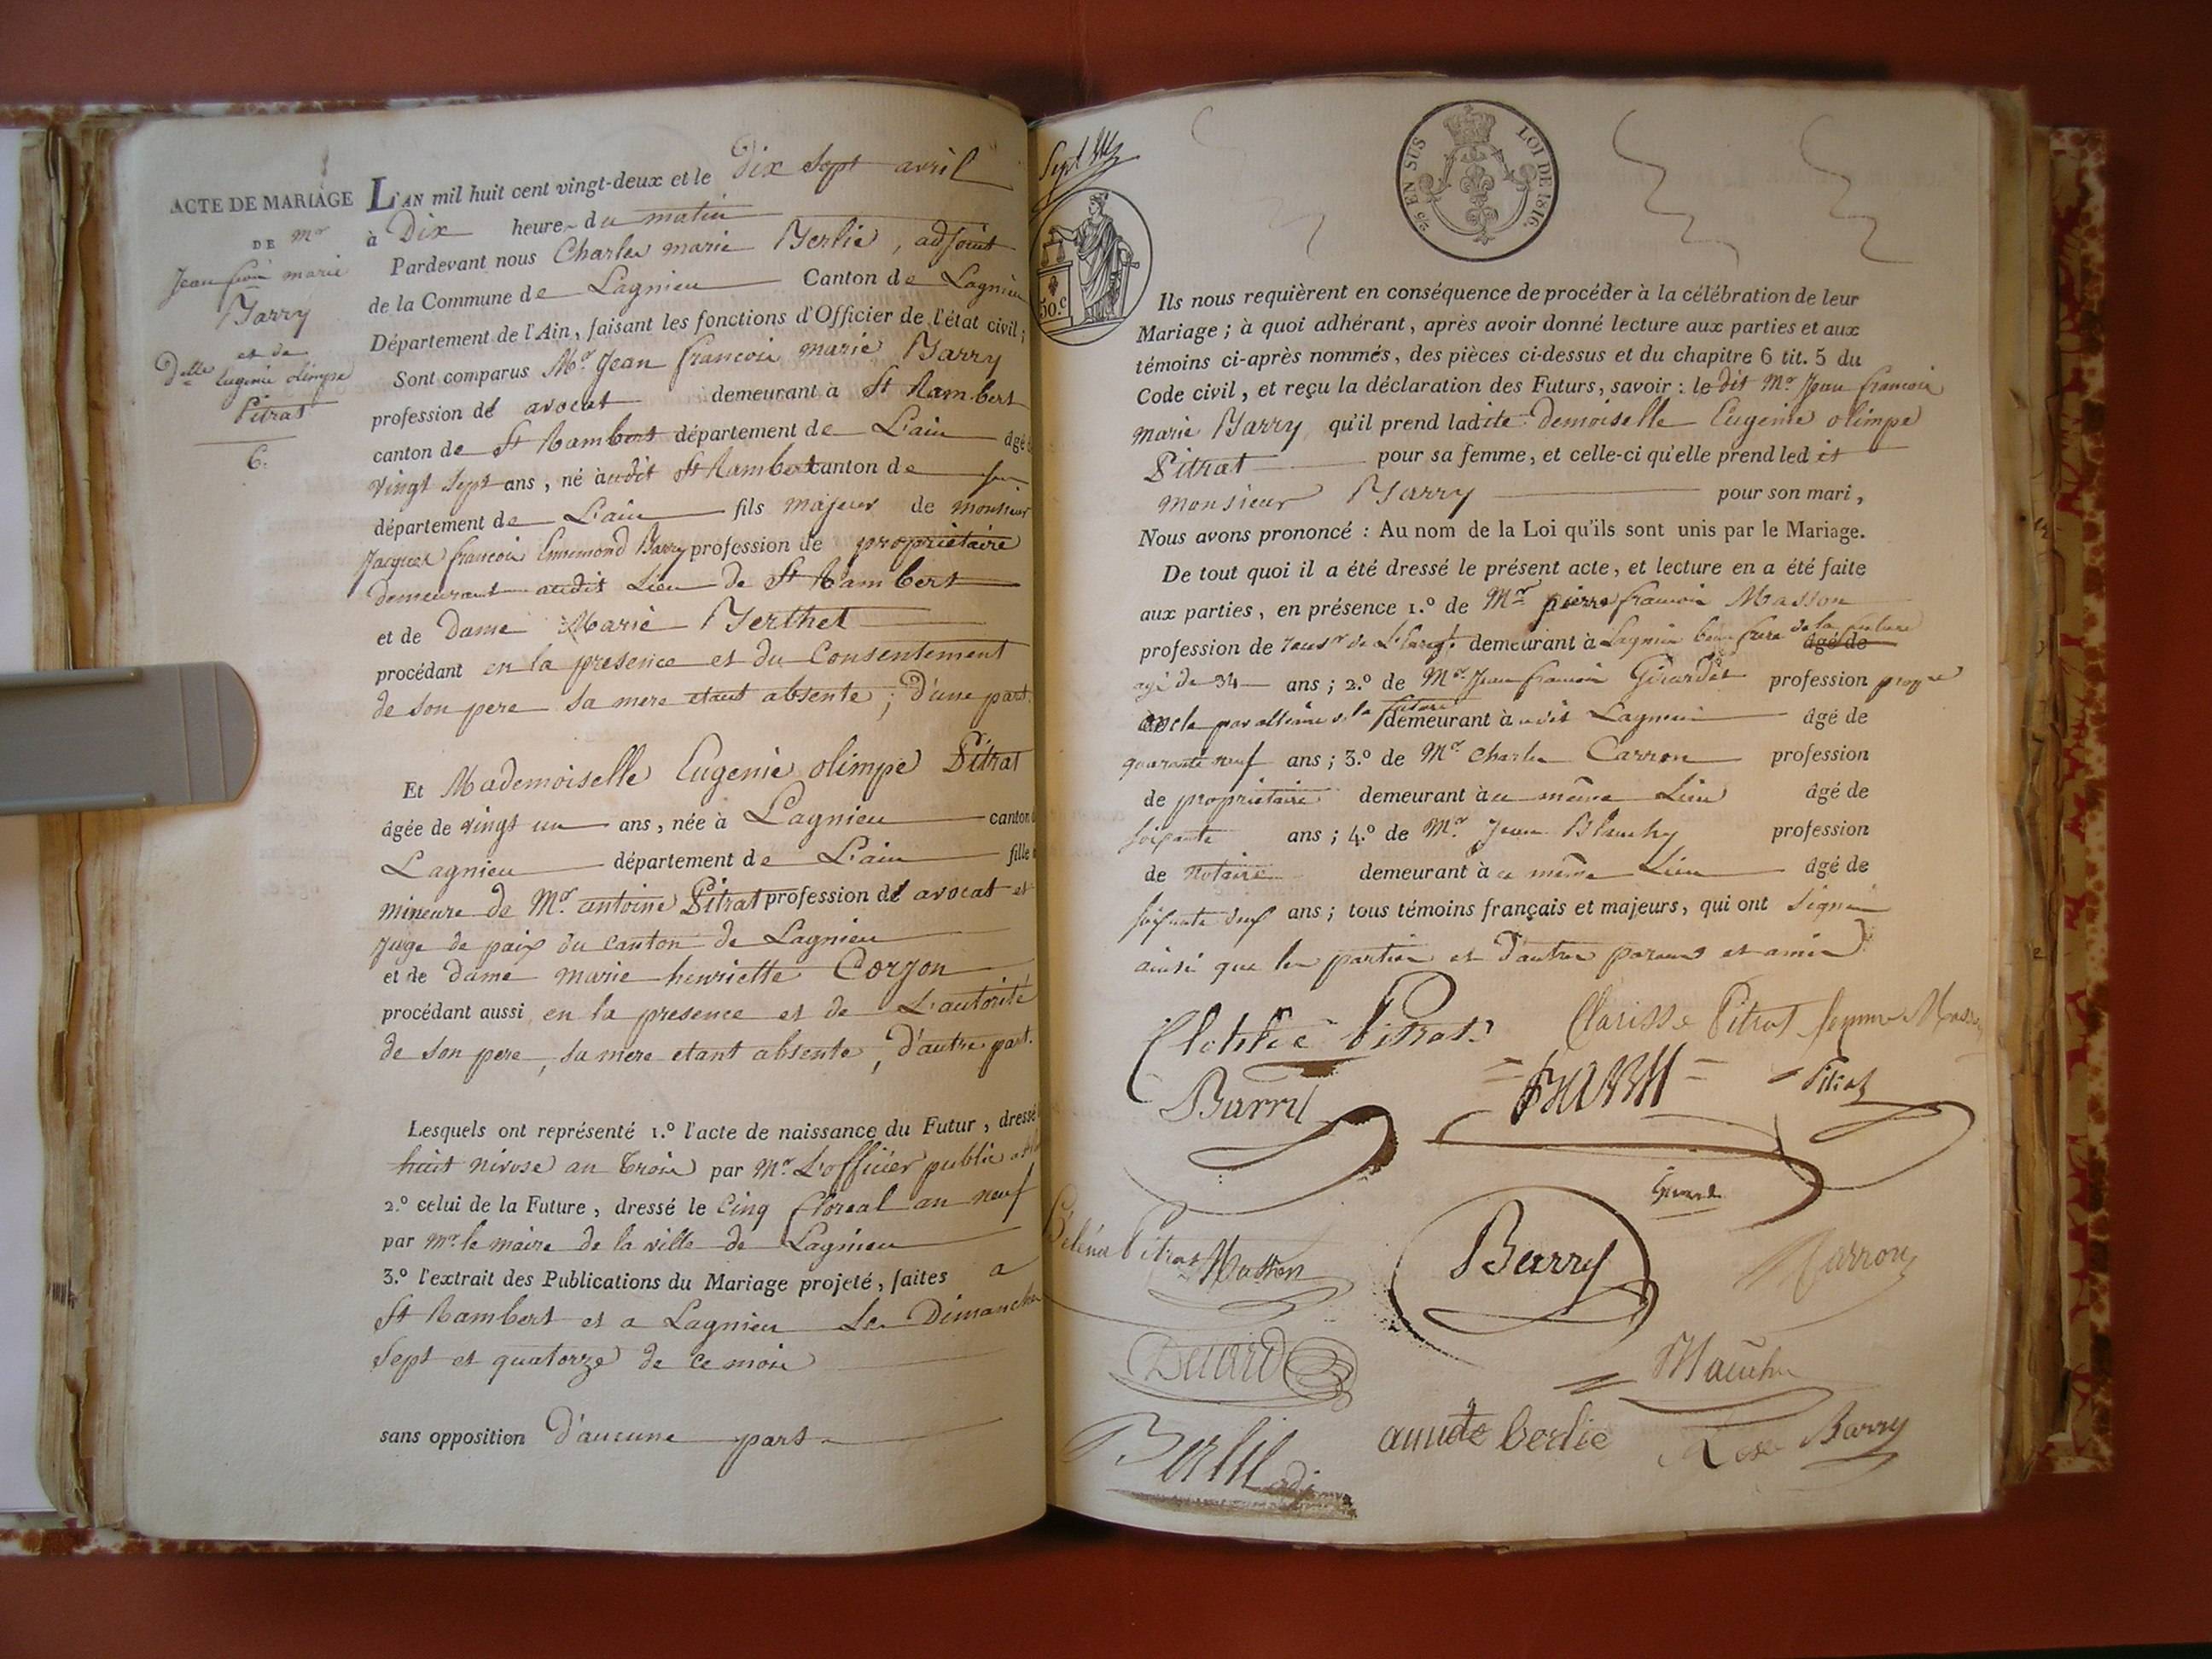 ACTE DE MARIAGE
DE Mr
Jean fcois marie
Barry
et de
Delle Eugenie olimpe
Pitrat
6.
L'AN mil huit cent vingt-deux et le dix sept avril
à Dix heure du matin
Pardevant nous Charles marie Berlie, adjoint
de la Commune de Lagnieu Canton de Lagnieu
Département de l'Ain, faisant les fonctions d'Officier de l'état civil;
Sont comparus Mr. Jean francois marie Barry
profession de avocat demeurant à St Rambert
canton de St Rambert département de L'ain âgé
vingt sept ans, né audit St Rambert canton de
département de L'ain fils majeur de monsieur
Jacques francois Ennemond Barry profession de propriétaire
demeurant audit Lieu de St Rambert
et de Dame Marie Berthet
procédant en la presence et du Consentement
de son pere sa mere etant absente; d'une part
Et Mademoiselle Eugenie olimpe Pitrat
âgée de vingt un ans, née à Lagnieu canton
Lagnieu département de L'ain fille
mineure de Mr. antoine Pitrat profession de avocat et
juge de paix du canton de Lagnieu
et de Dame marie henriette Corzon
procédant aussi en la presence et de L'autorité
de son pere, sa mere etant absente, d'autre part.
Lesquels ont représenté 1.º l'acte de naissance du Futur, dressé
huit nivose an trois par Mr. L'officier public
2.º celui de la Future, dressé le Cinq floreal an neuf
par mr. le maire de la ville de Lagnieu
3.º l'extrait des Publications du Mariage projeté, faites a
St Rambert et a Lagnieu Les Dimanches
sept et quatorze de ce mois
sans opposition d'aucune part
Sept
50.c
2/5 EN SUS LOI DE 1816.
Ils nous requièrent en conséquence de procéder à la célébration de leur
Mariage; à quoi adhérant, après avoir donné lecture aux parties et aux
témoins ci-après nommés, des pièces ci-dessus et du chapitre 6 tit. 5 du
Code civil, et reçu la déclaration des Futurs, savoir: le dit Mr Jean francois
marie Barry qu'il prend ladite demoiselle Eugenie olimpe
Pitrat pour sa femme, et celle-ci qu'elle prend ledit
monsieur Barry pour son mari,
Nous avons prononcé: Au nom de la Loi qu'ils sont unis par le Mariage.
De tout quoi il a été dressé le présent acte, et lecture en a été faite
aux parties, en présence 1.º de Mr pierre francois Masson
profession de demeurant à Lagnieu beau frere de la future âgé de
agé de 34 ans; 2.º de Mr. Jean francois Girardet profession
oncle par alliance de la future demeurant audit Lagnieu âgé de
quarante neuf ans; 3.º de Mr Charles Carron profession
de proprietaire demeurant à ce même Lieu âgé de
soixante ans; 4.º de Mr. Jean profession
de Notaire demeurant à ce même Lieu âgé de
soixante neuf ans; tous témoins français et majeurs, qui ont signé
ainsi que les parties et d'autres parens et amis
Clotilde Pitrat
Clarisse Pitrat femme Masson
Barry
Pitrat
Pitrat Masson
Barry
Carron
Berlie adj
berlie
Rose Barry